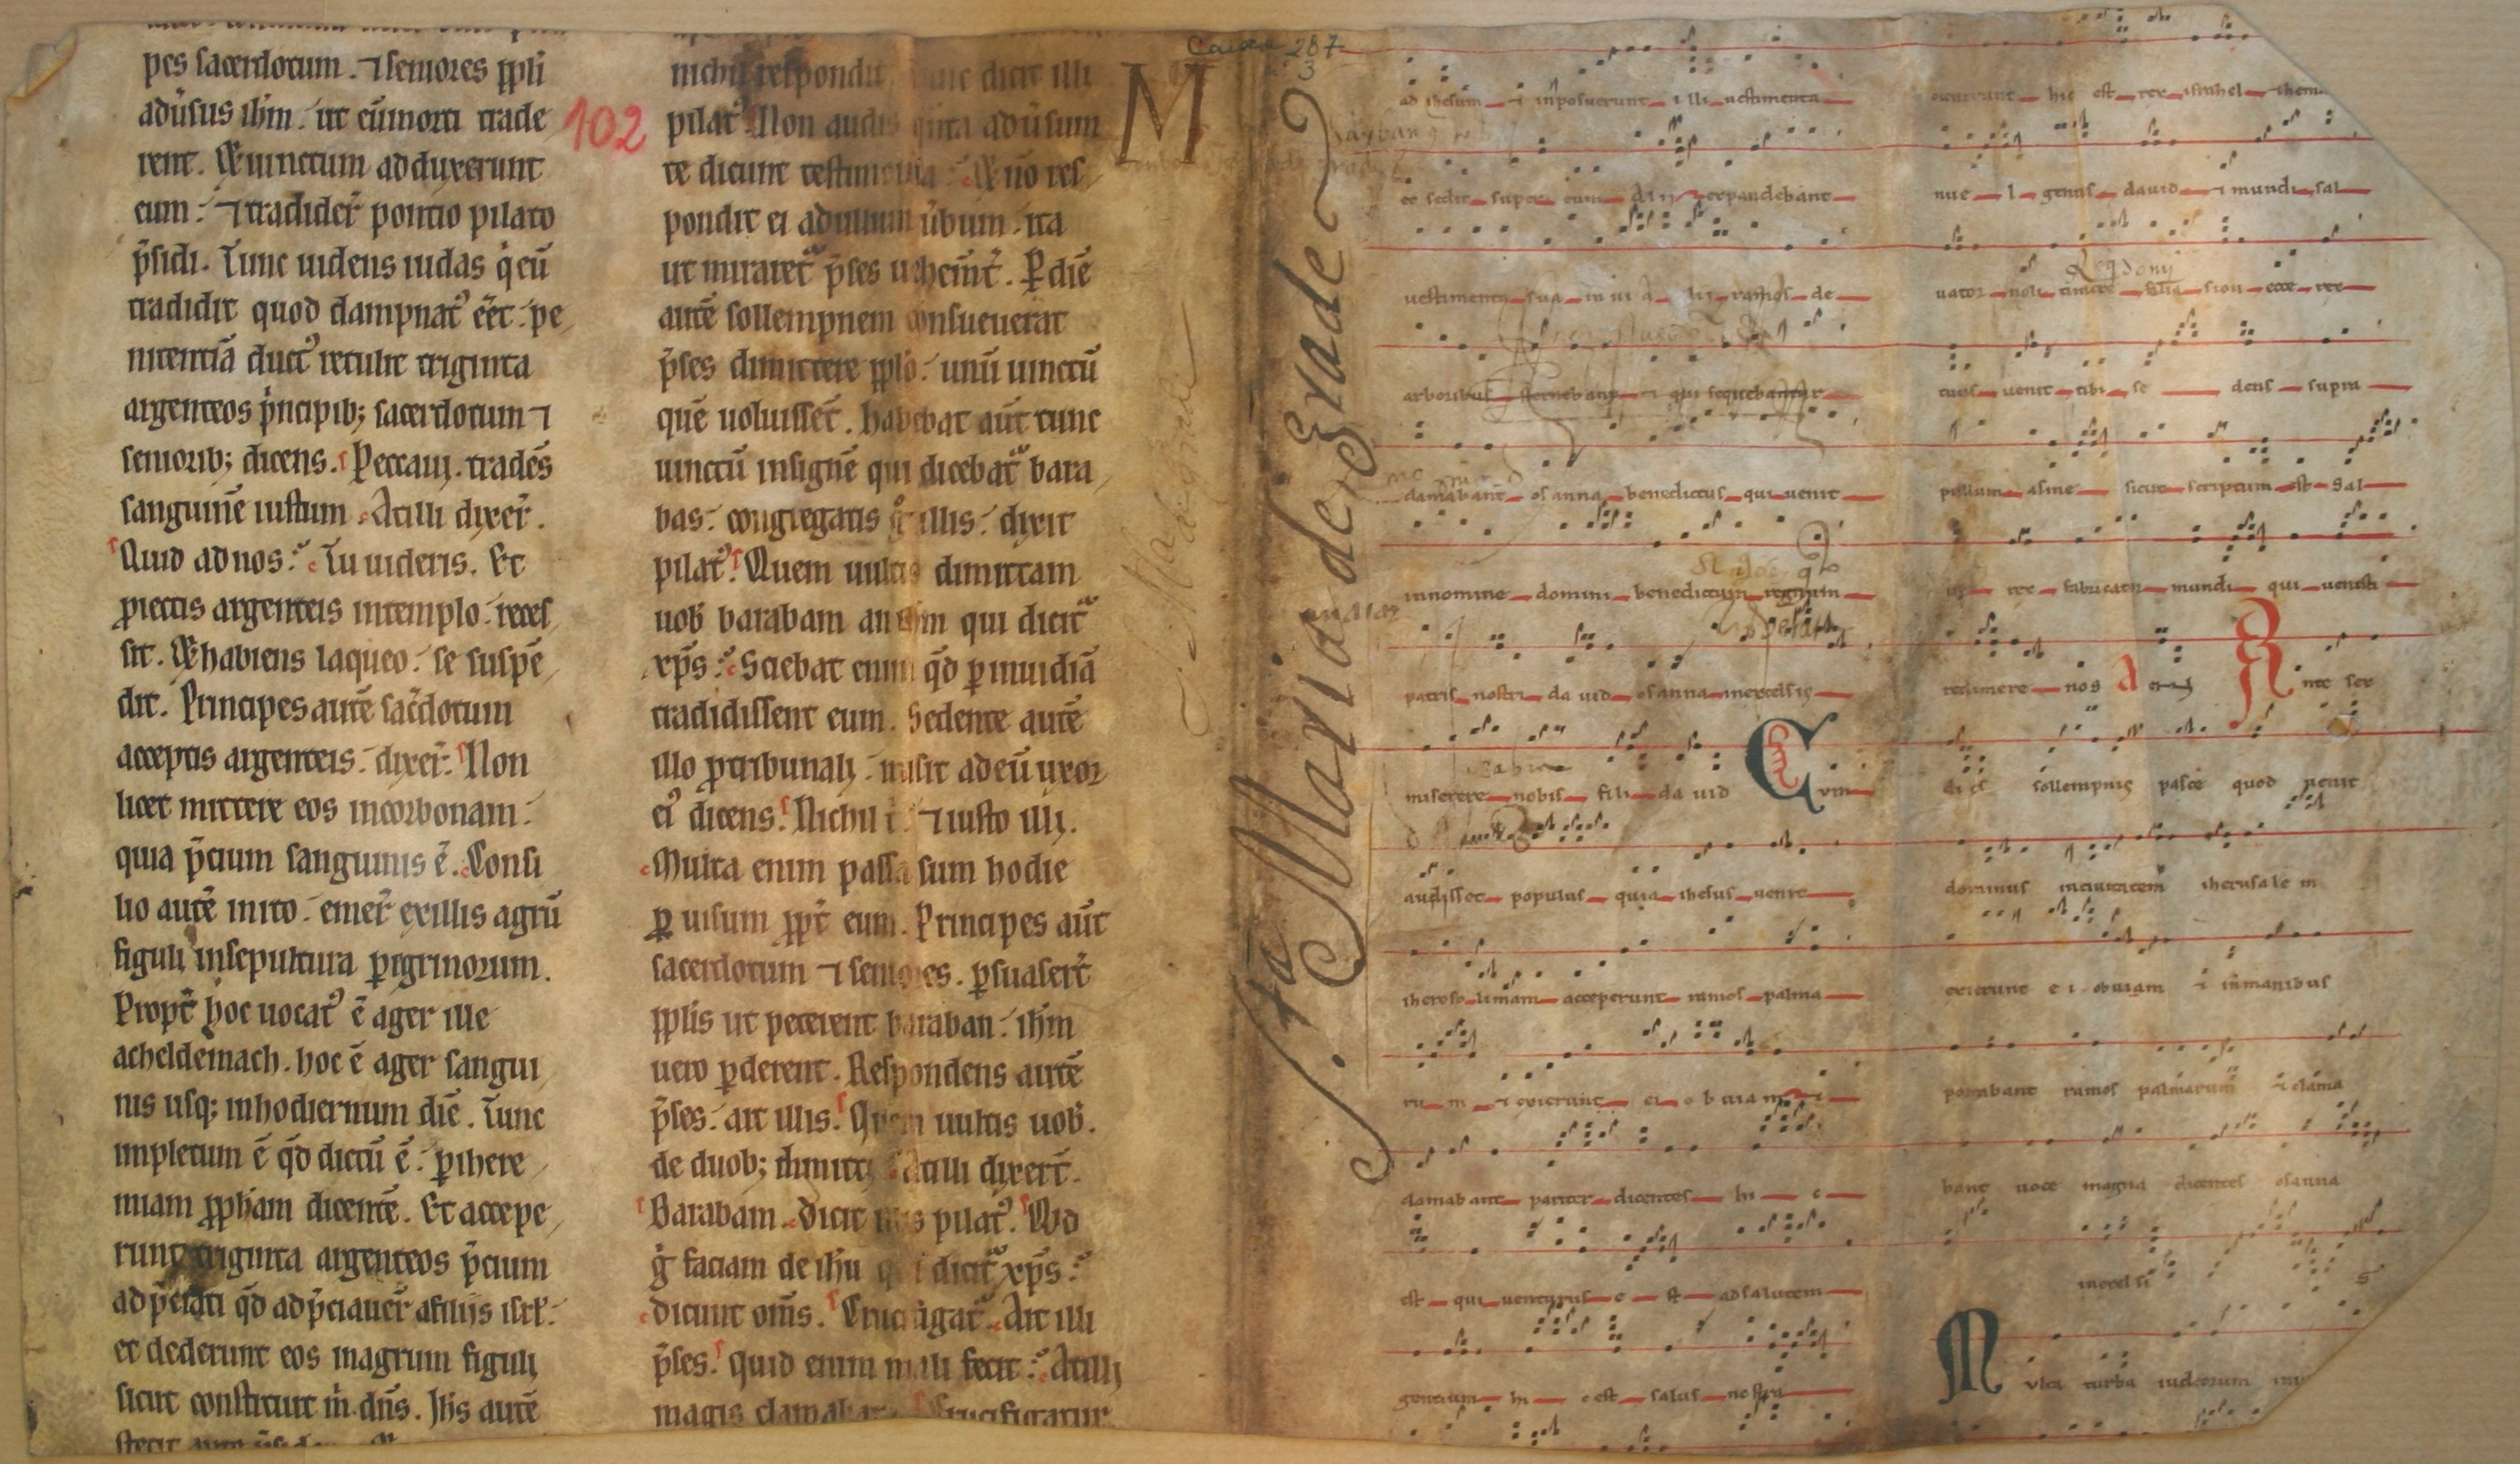 pes sacerdotum. ⁊ seniores ppli
adũsus ihm. ut eũ morti trade
rent. Et uinctum adduxerunt
eum. ⁊ tradider̃ pontio pilato
p̃sidi. Tunc uidens iudas q̇ eũ
tradidit quod dampnat᾽ eẽt. pe
nitentiã duct᾽ retulit triginta
argenteos p̃ncipib; sacerdotum ⁊
seniorib; dicens. Peccaui. tradẽs
sanguinẽ iustum. At illi dixer̃.
Quid ad nos? Tu uideris. Et
proiectis argenteis in templo. reces
sit. Et habiens laqueo. se suspẽ
dit. Principes autẽ sac̃dotum
acceptis argenteis. dixer̃. Non
licet mittere eos in corbonam.
quia p̃cium sanguinis ẽ. Consi
lio autẽ inito. emer̃ ex illis agrũ
figuli in sepultura pegrinorum.
Propt̃ hoc uocat᾽ ẽ ager ille
acheldemach. hoc ẽ ager sangui
nis usq; in hodiernum diẽ. Tunc
impletum ẽ qd̃ dictũ ẽ. p ihere
miam ppham dicentẽ. Et accepe
runt triginta argenteos p̃cium
ad p̃ciati qd̃ ad p̃ciauer̃ a filijs isrl̃.
et dederunt eos in agrum figuli
sicut constituit m̃ dñs. Ihs autẽ
102
nichil respondit tunc dicit illi
pilat᾽. Non audis quita adũsum
te dicunt testimonia? Et nõ res
pondit ei ad ullum ũbum. ita
ut miraret᾽ p̃ses uehem̃t̃. P diẽ
autẽ sollempnem consueuerat
p̃ses dimittere pplo. unũ uinctũ
quẽ uoluissẽt. habebat aũt tunc
uinctũ insignẽ qui dicebat᾽ bara
bas. congregatis g̊ illis. dixit
pilat᾽. Quem uultis dimittam
uob̃ barabam an ihm qui dicit᾽
xp̃s? Sciebat enim qd̃ p inuidiã
tradidissent eum. Sedente autẽ
illo p tribunali. misit ad eũ uxor
ei᾽ dicens. Nichil t̃. ⁊ iusto illi.
Multa enim passa sum hodie
p uisum ppt̃ eum. Principes aũt
sacerdotum ⁊ seniores. psuaser̃t
pplis ut peterent baraban. ihm
uero pderent. Respondens autẽ
p̃ses. ait illis. Quem uultis uob̃.
de duob; dimitti? At illi dixer̃t.
Barabam. Dicit illis pilat᾽. Qid
g̊ faciam de ihu qui dicit᾽ xp̃s?
dicunt om̃s. Crucifigat᾽. Ait illi
p̃ses. quid enim mali fecit? At illi
magis clamabant Crucifigatur
M
287
3
S.ta Maria de Grade
ad ihesum ⁊ inposuerunt illi uestimenta
et sedit super eum Alij expandebant
uestimenta sua in uia alij ramos de
arboribus sternebant ⁊ qui sequebantur
clamabant osanna benedictus qui uenit
in nomine domini benedictum regnum
patris nostri dauid osanna in excelsis
miserere nobis fili dauid Cum
audisset populus quia ihesus uenit
iherosolimam acceperunt ramos palma
rum ⁊ exierunt ei obuiam ⁊
clamabant pariter dicentes hi c
est qui uenturus est ad salutem
gentium hi c est salus nostra
hic est rex israhel
nue l gentis dauid ⁊ mundi sal
uator noli timere filia sion ecce rex
tuus uenit tibi se dens supra
pullum asine sicut scriptum est Sal
ue rex fabricator mundi qui uenisti
redimere nos Ante sex
dies sollempnis pasce quod uenit
dominus in ciuitatem iherusalem
exierunt ei obuiam ⁊ in manibus
portabant ramos palmarum ⁊ clama
bant uoce magna dicentes osanna
in excelsis
Multa turba iudeorum